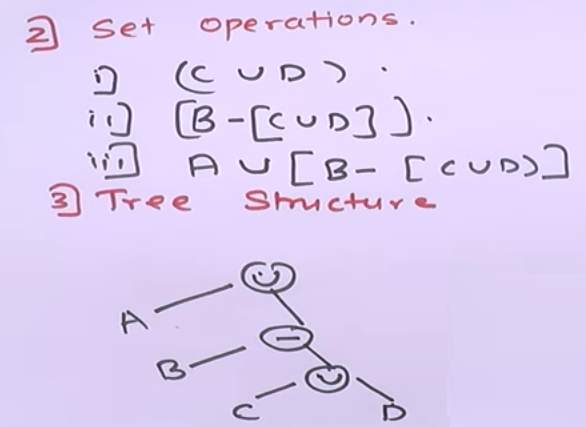 2] Set operations.
i] (C ∪ D) .
ii] [B-[C∪D] ].
iii] A ∪ [B- [C∪D)]
3] Tree Structure
∪
A
-
B
∪
C D